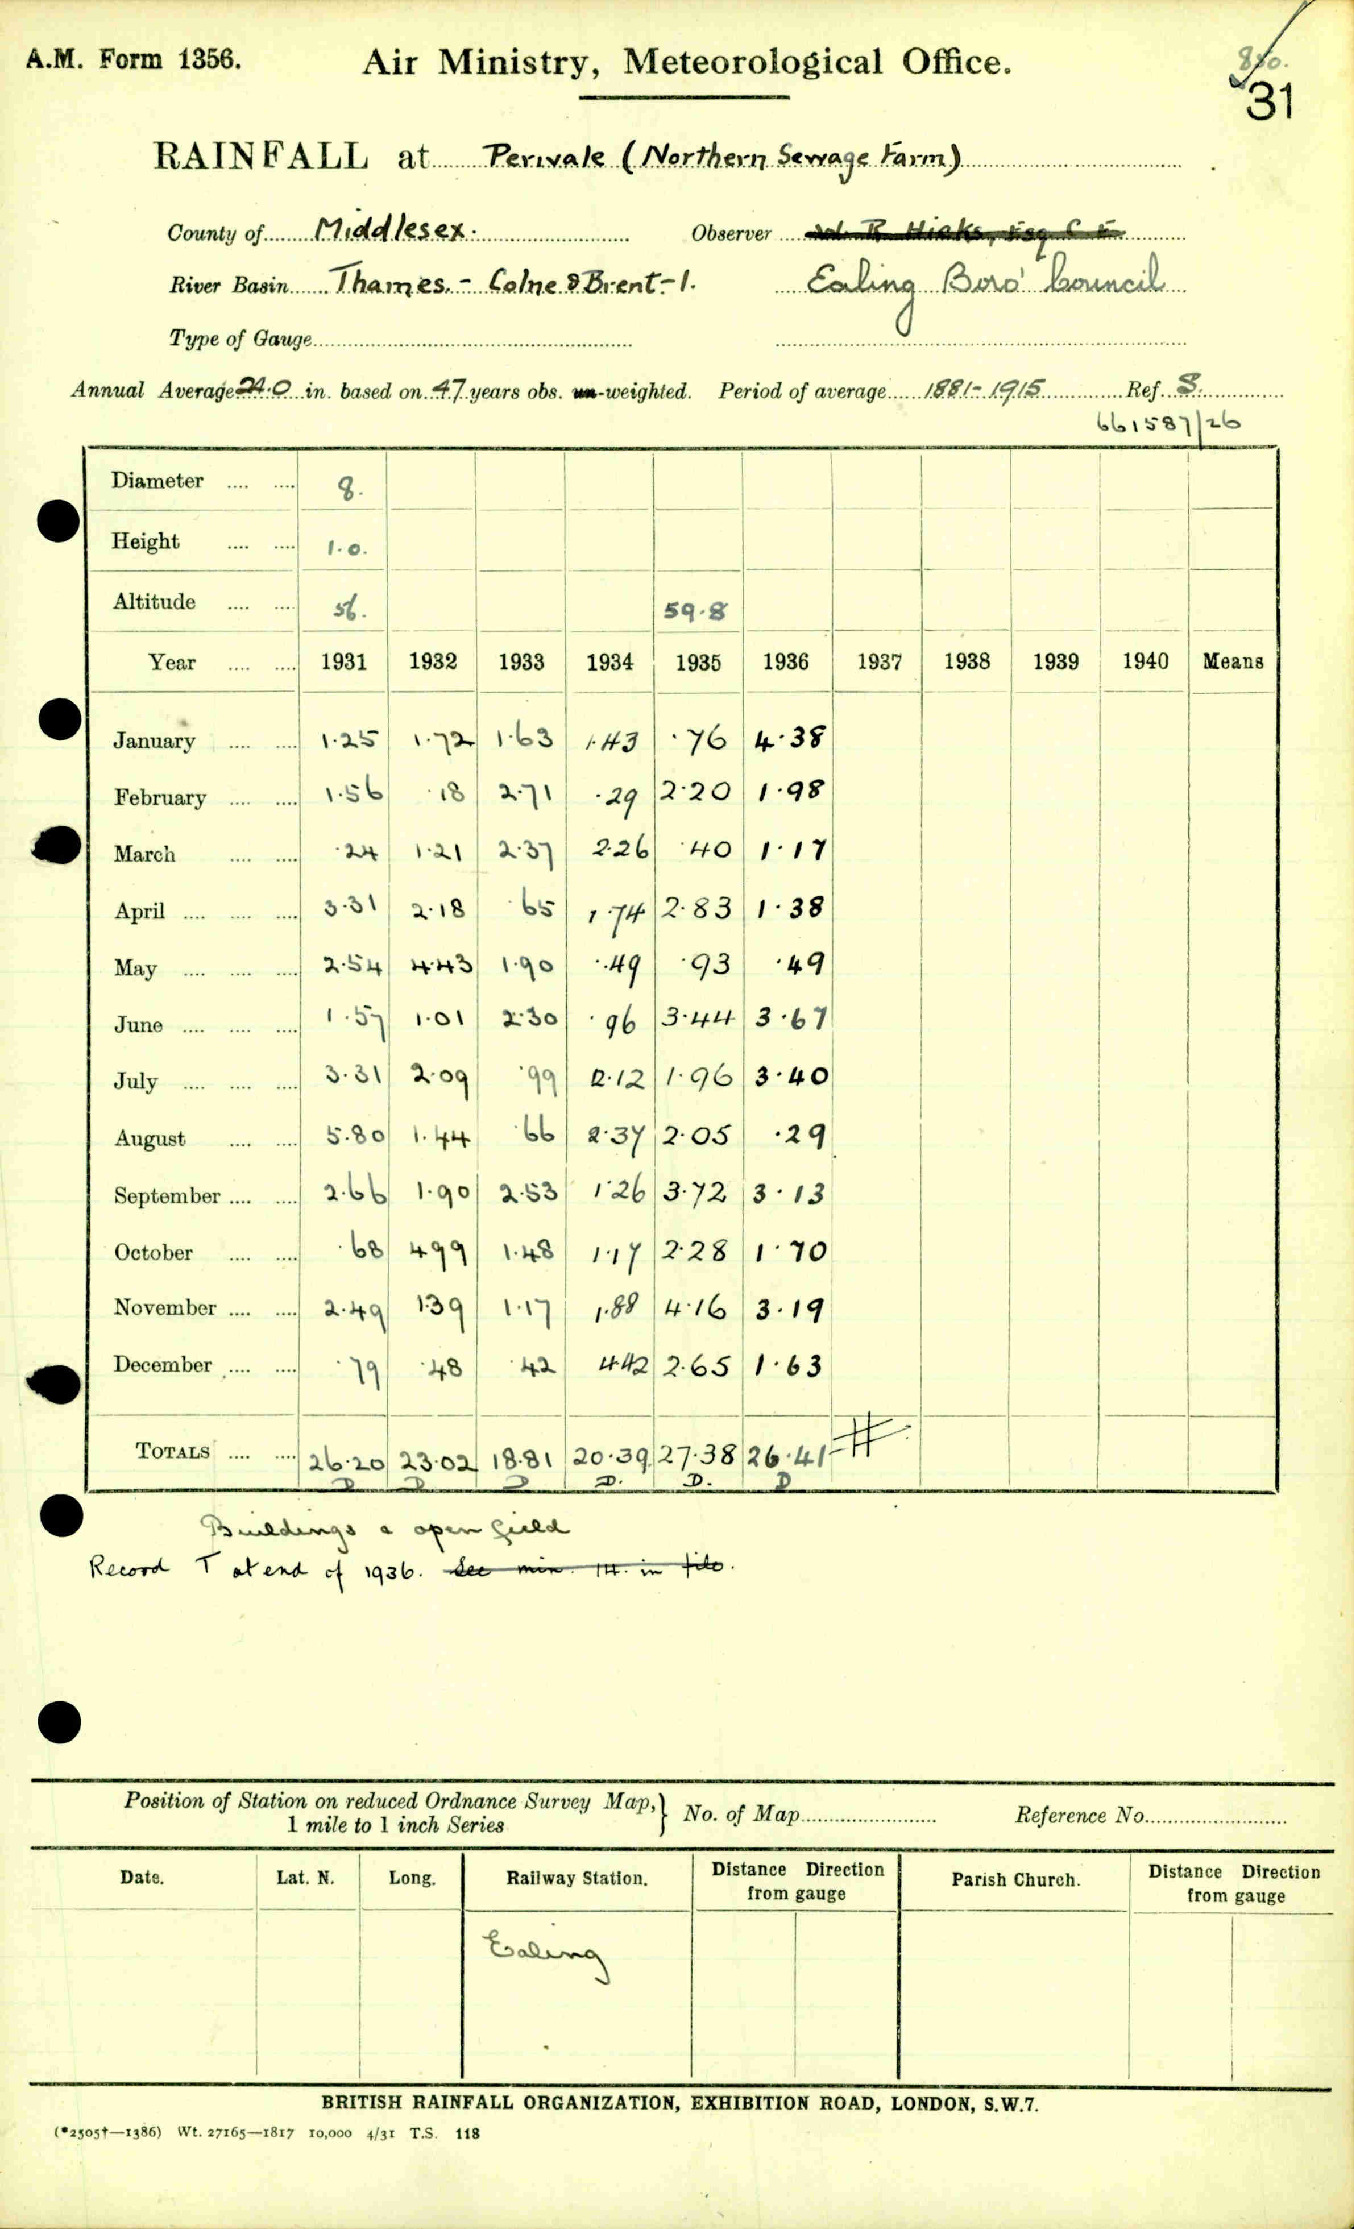 A.M. Form 1356.
Air Ministry, Meteorological Office.
850.
31
RAINFALL at Perivale (Northern Sewage Farm)
County of Middlesex. Observer W. R. Hicks, Esq C E
River Basin Thames. - Colne & Brent - 1. Ealing Boro' Council
Type of Gauge
Annual Average 24.0 in. based on 47 years obs. un-weighted. Period of average 1881-1915 Ref. S.
661587/26
Diameter 8.
Height 1.0.
Altitude 56. 59.8
Year 1931 1932 1933 1934 1935 1936 1937 1938 1939 1940 Means
January 1.25 1.72 1.63 1.43 .76 4.38
February 1.56 .18 2.71 .29 2.20 1.98
March .24 1.21 2.37 2.26 .40 1.17
April 3.31 2.18 .65 1.74 2.83 1.38
May 2.54 4.43 1.90 .49 .93 .49
June 1.57 1.01 2.30 .96 3.44 3.67
July 3.31 2.09 .99 2.12 1.96 3.40
August 5.80 1.44 .66 2.37 2.05 .29
September 2.66 1.90 2.53 1.26 3.72 3.13
October .68 4.99 1.48 1.17 2.28 1.70
November 2.49 1.39 1.17 1.88 4.16 3.19
December .79 .48 .42 4.42 2.65 1.63
TOTALS 26.20 23.02 18.81 20.39 27.38 26.41 #
D D D D. D. D
Buildings & open field
Record T at end of 1936. See min. 14. in file.
Position of Station on reduced Ordnance Survey Map, } No. of Map Reference No.
1 mile to 1 inch Series
Date. Lat. N. Long. Railway Station. Distance Direction from gauge Parish Church. Distance Direction from gauge
Ealing
BRITISH RAINFALL ORGANIZATION, EXHIBITION ROAD, LONDON, S.W.7.
(*2505†—1386) Wt. 27165—1817 10,000 4/31 T.S. 118